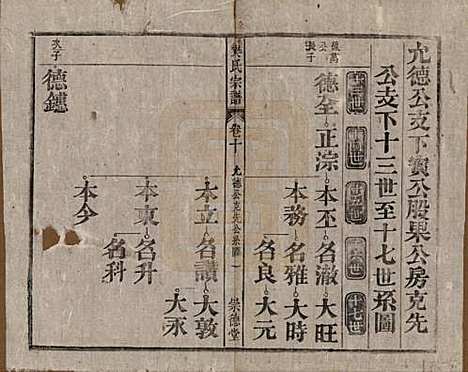 允德公支下寳公股果公房克先
公支下十三世至十七世系圖
十三世
十四世
十五世
十六世
十七世
長子
德全
正淙
本丕
名澈
大旺
本務
名雅
大時
名良
大元
氏宗譜
卷十
崇德堂
本立
名讃
大敦
大永
本東
名升
名科
本今
次子
德鑪